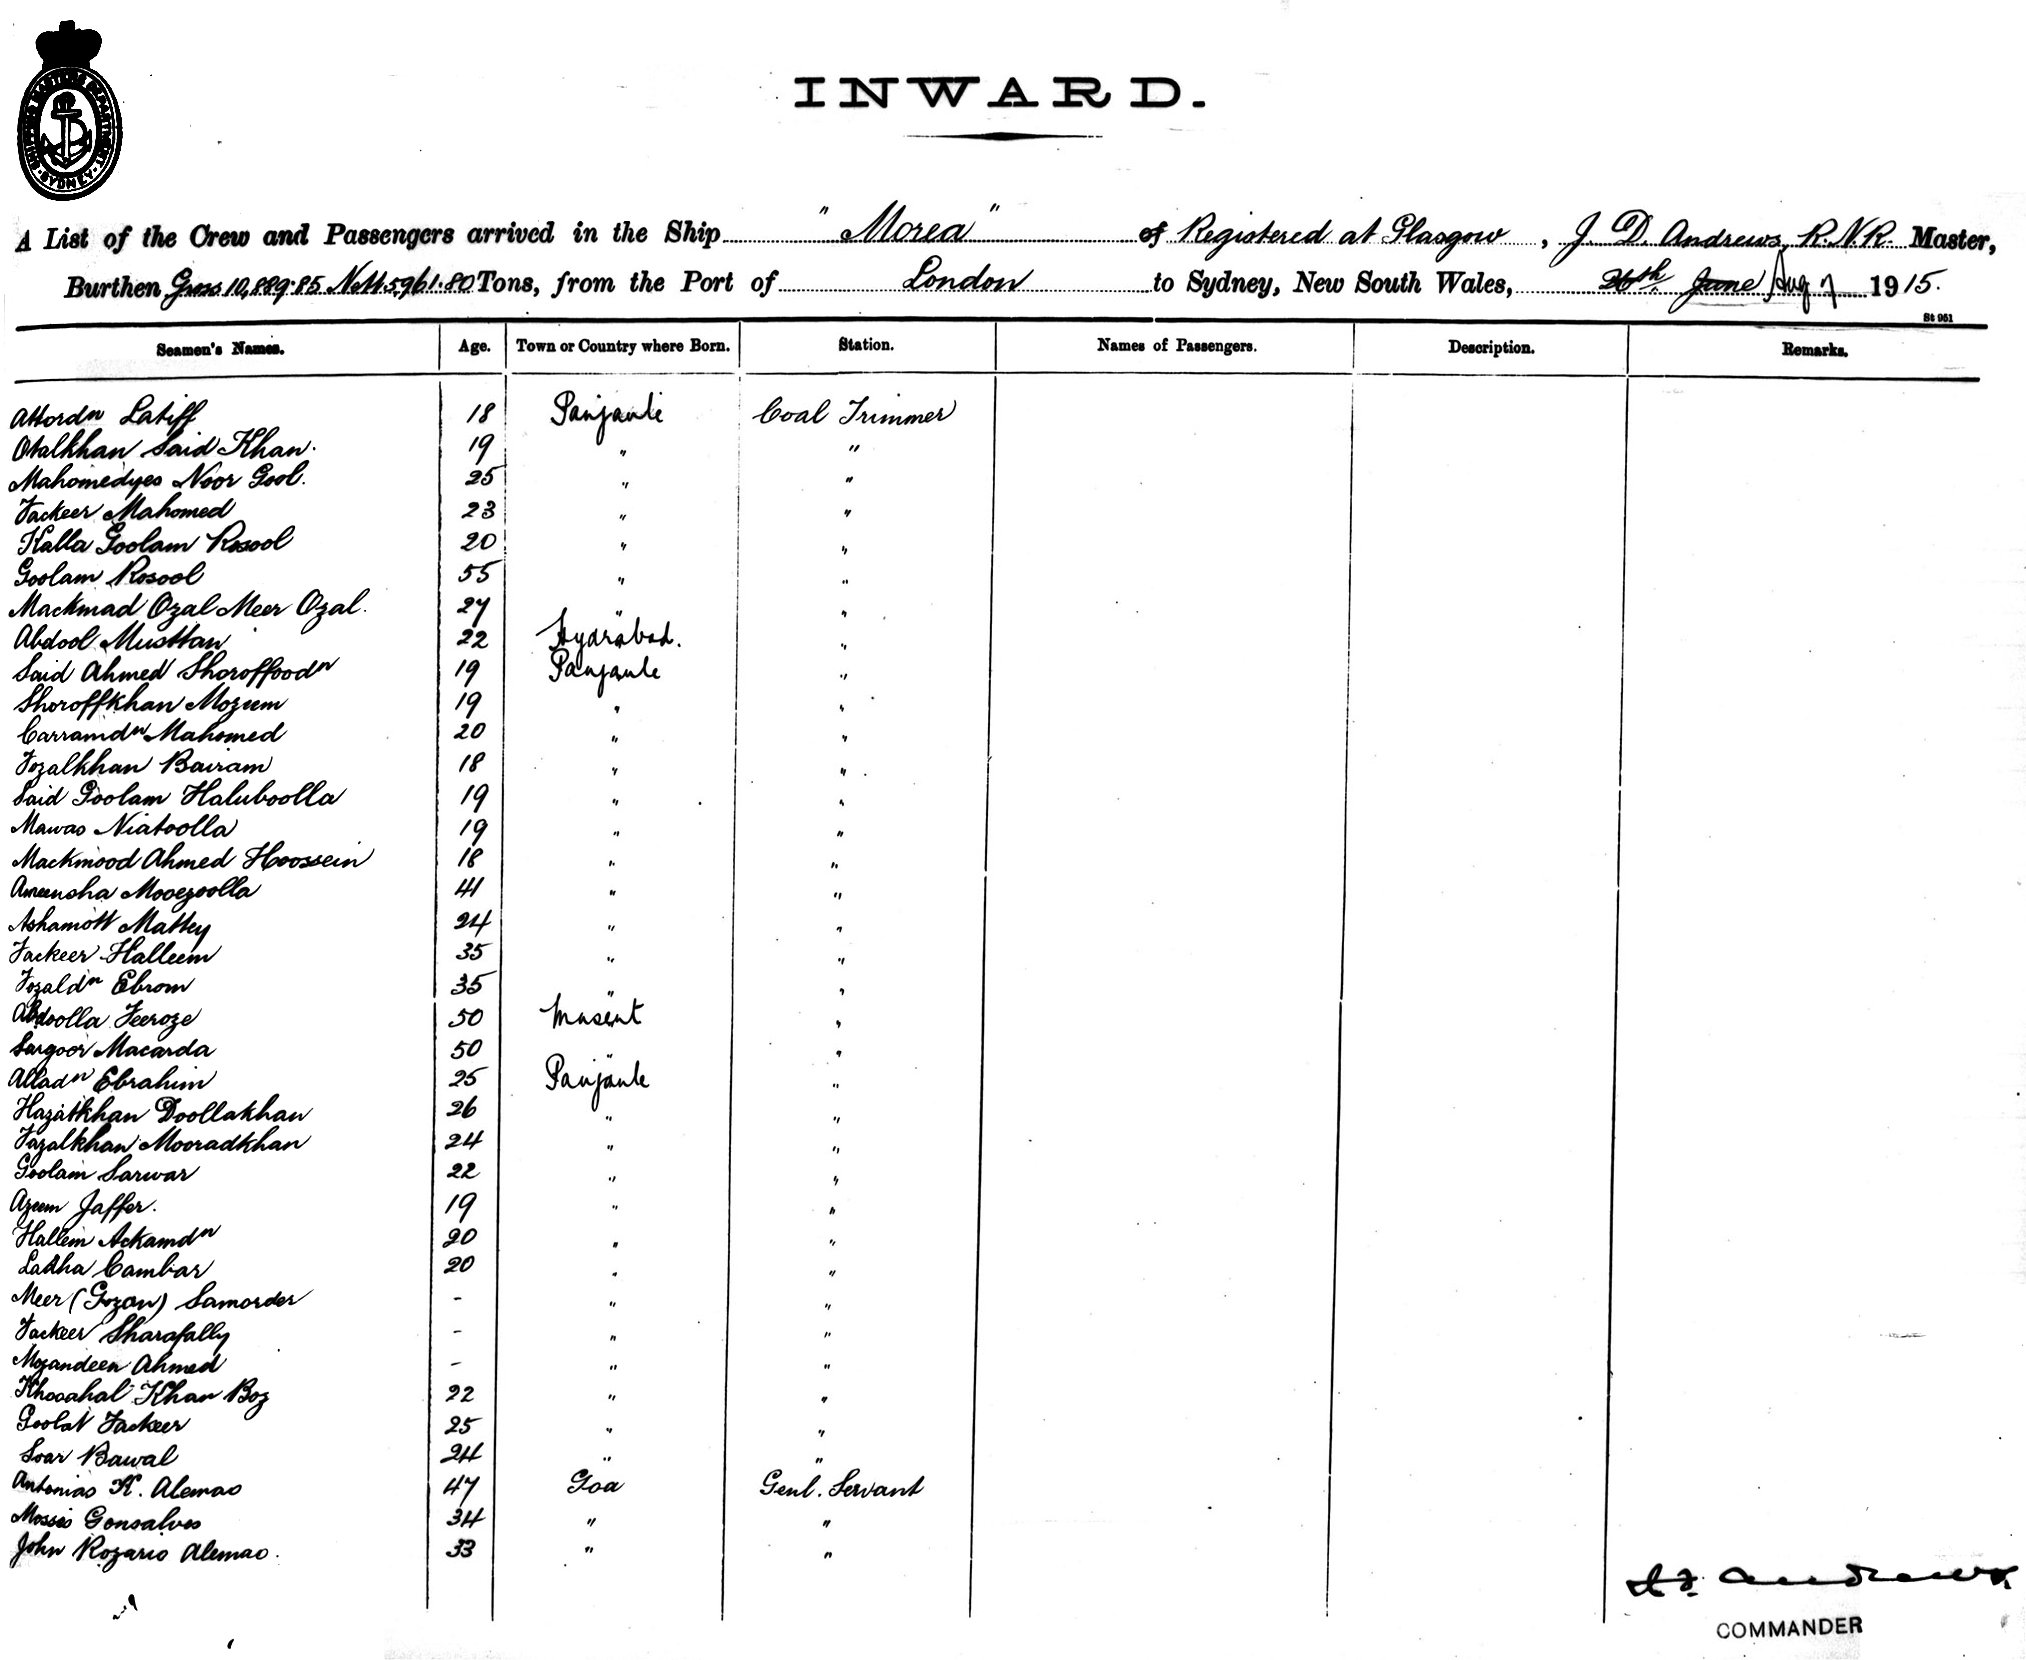 SHIPPING MASTER'S DEPARTMENT SYDNEY
INWARD.
A List of the Crew and Passengers arrived in the Ship "Morea" of Registered at Glasgow, J. D. Andrews, R.N.R. Master,
Burthen Gross 10,889.85 Nett 5961.80 Tons, from the Port of London to Sydney, New South Wales, 26th June Aug 7 1915.
St 961
Seamen's Names. Age. Town or Country where Born. Station. Names of Passengers. Description. Remarks.
Attordn Latiff 18 Panjaule Coal Trimmer
Otalkhan Said Khan. 19 " "
Mahomedyes Noor Gool. 25 " "
Fackeer Mahomed 23 " "
Kalla Goolam Rosool 20 " "
Goolam Rosool 55 " "
Mackmad Ozal Meer Ozal. 27 " "
Abdool Musttan 22 Hydrabad. "
Said Ahmed Shoroffoodn 19 Panjaule "
Shoroffkhan Mozeem 19 " "
Carramdn Mahomed 20 " "
Fozalkhan Bairam 18 " "
Said Goolam Haluboolla 19 " "
Mawas Niatoolla 19 " "
Mackmood Ahmed Hoossein 18 " "
Ameensha Mooezoolla 41 " "
Ashamott Mattey 24 " "
Fackeer Halleem 35 " "
Fozaldn Ebrom 35 " "
Abdoolla Feeroze 50 Muscat "
Sargoor Macarda 50 " "
Alladn Ebrahim 25 Panjaule "
Hazatkhan Doollakhan 26 " "
Fazalkhan Mooradkhan 24 " "
Goolam Sarwar 22 " "
Azeem Jaffer. 19 " "
Hallem Ackamdn 20 " "
Ladha Cambar 20 " "
Meer (Gozan) Samorder - " "
Fackeer Sharafally - " "
Mozandeen Ahmed - " "
Khooahal Khan Boz 22 " "
Goolat Fackeer 25 " "
Soar Bawal 24 " "
Antonias K. Alemao 47 Goa Genl. Servant
Mosses Gonsalves 34 " "
John Rozario Alemao. 33 " "
Andrews
COMMANDER